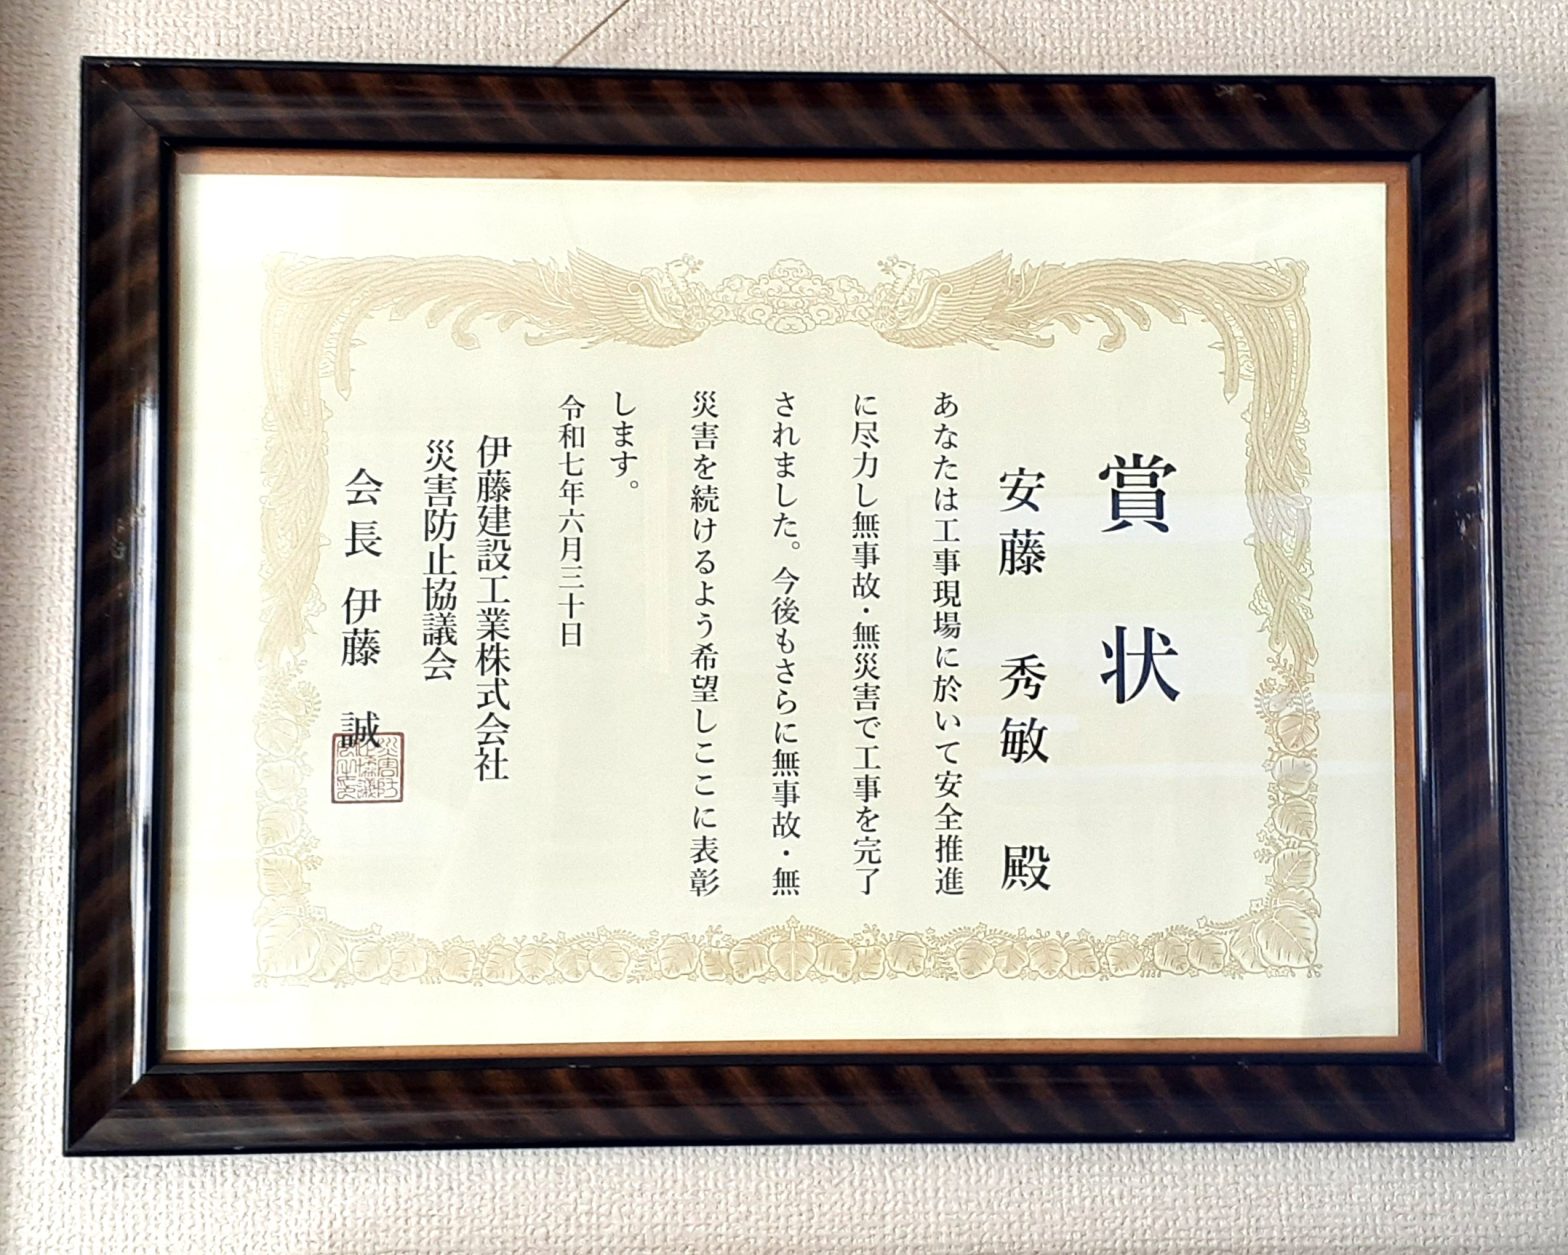 賞状
安藤 秀敏 殿
あなたは工事現場に於いて安全推進
に尽力し無事故・無災害で工事を完了
されました。今後もさらに無事故・無
災害を続けるよう希望しここに表彰
します。
令和七年六月三十日
伊藤建設工業株式会社
災害防止協議会
会長 伊藤 誠